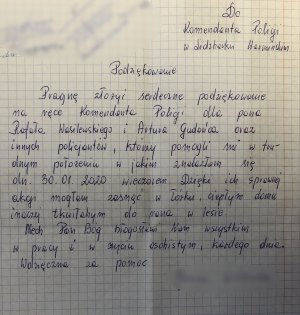 Do
Komendanta Policji
w Lidzbarku Warmińskim
Podziękowanie
Pragnę złożyć serdeczne podziękowanie
na ręce Komendanta Policji dla pana
Rafała Wasilewskiego i Artura Gudońca oraz
innych policjantów, którzy pomogli mi w tru-
dnym położeniu w jakim znalazłam się
dn. 30.01.2020 wieczorem. Dzięki ich sprawnej
akcji mogłam zasnąć w łóżku, ciepłym domu
inaczej tkwiłabym do rana w lesie!
Niech Pan Bóg błogosławi Wam wszystkim
w pracy i w życiu osobistym, każdego dnia.
Wdzięczna za pomoc